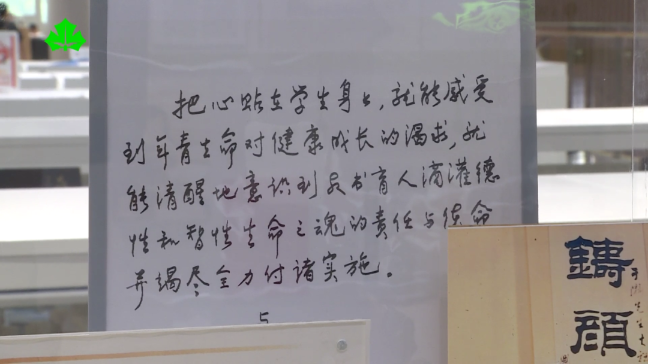 把心贴在学生身上,就能感受
到年青生命对健康成长的渴求,就
能清醒地意识到教书育人滴灌德
性和智性生命之魂的责任与使命
并竭尽全力付诸实施。
5
鑄顔